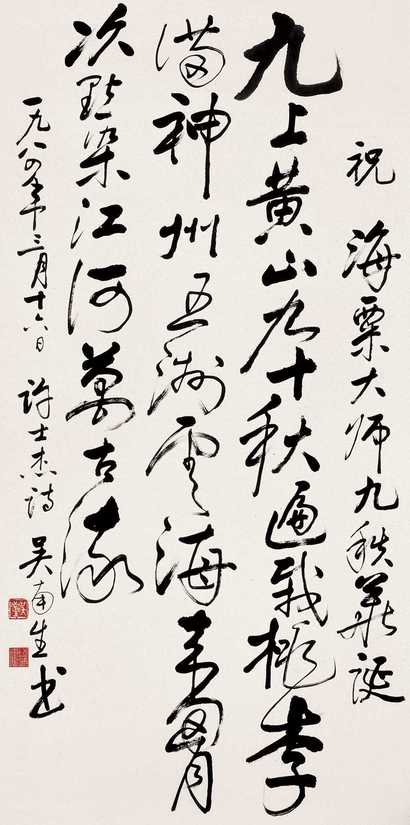 祝 海粟大师九秩華诞
九上黄山九十秋遍栽桃李
满神州五洲云海来胷
次點染江河萬古流
一九八四年三月十六日 许士杰诗 吴南生书